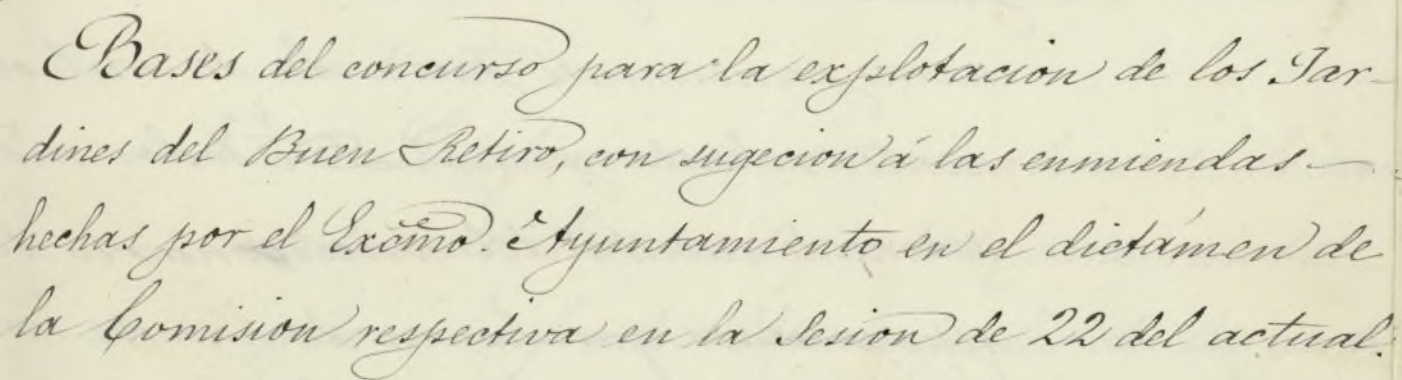 Bases del concurso para la explotacion de los Jar-
dines del Buen Retiro, con sugecion á las enmiendas-
hechas por el Excmo. Ayuntamiento en el dictámen de
la Comision respectiva en la Sesion de 22 del actual.